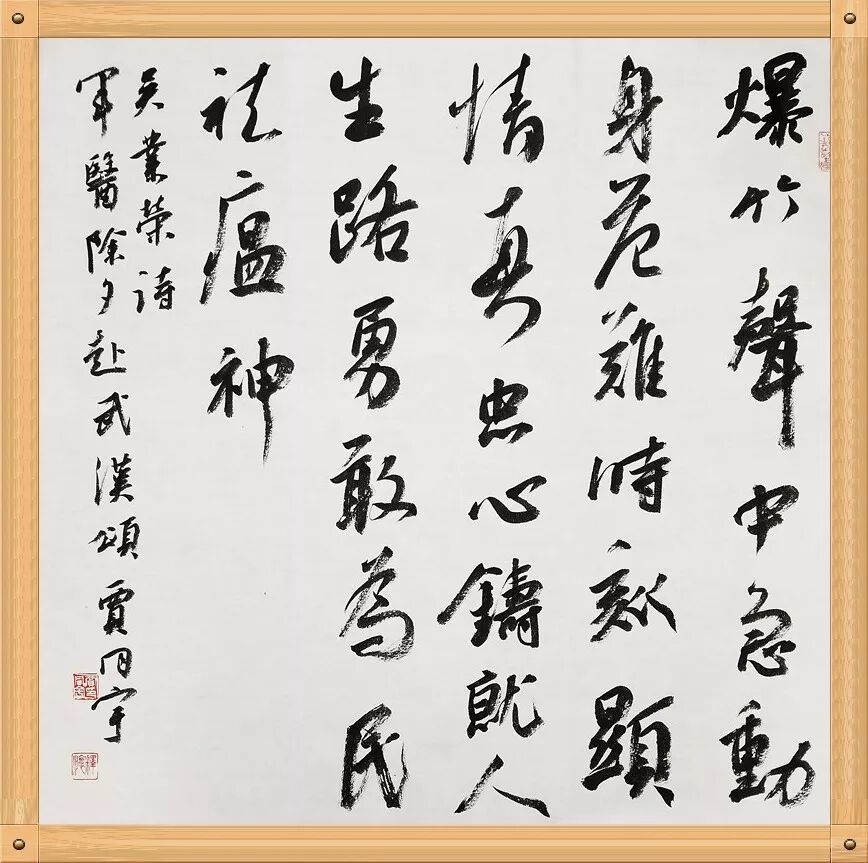 爆竹聲中急動
身危難時刻顯
情真忠心鑄就人
生路勇敢為民
祛瘟神
吳業榮詩
軍醫除夕赴武漢頌賈同宇